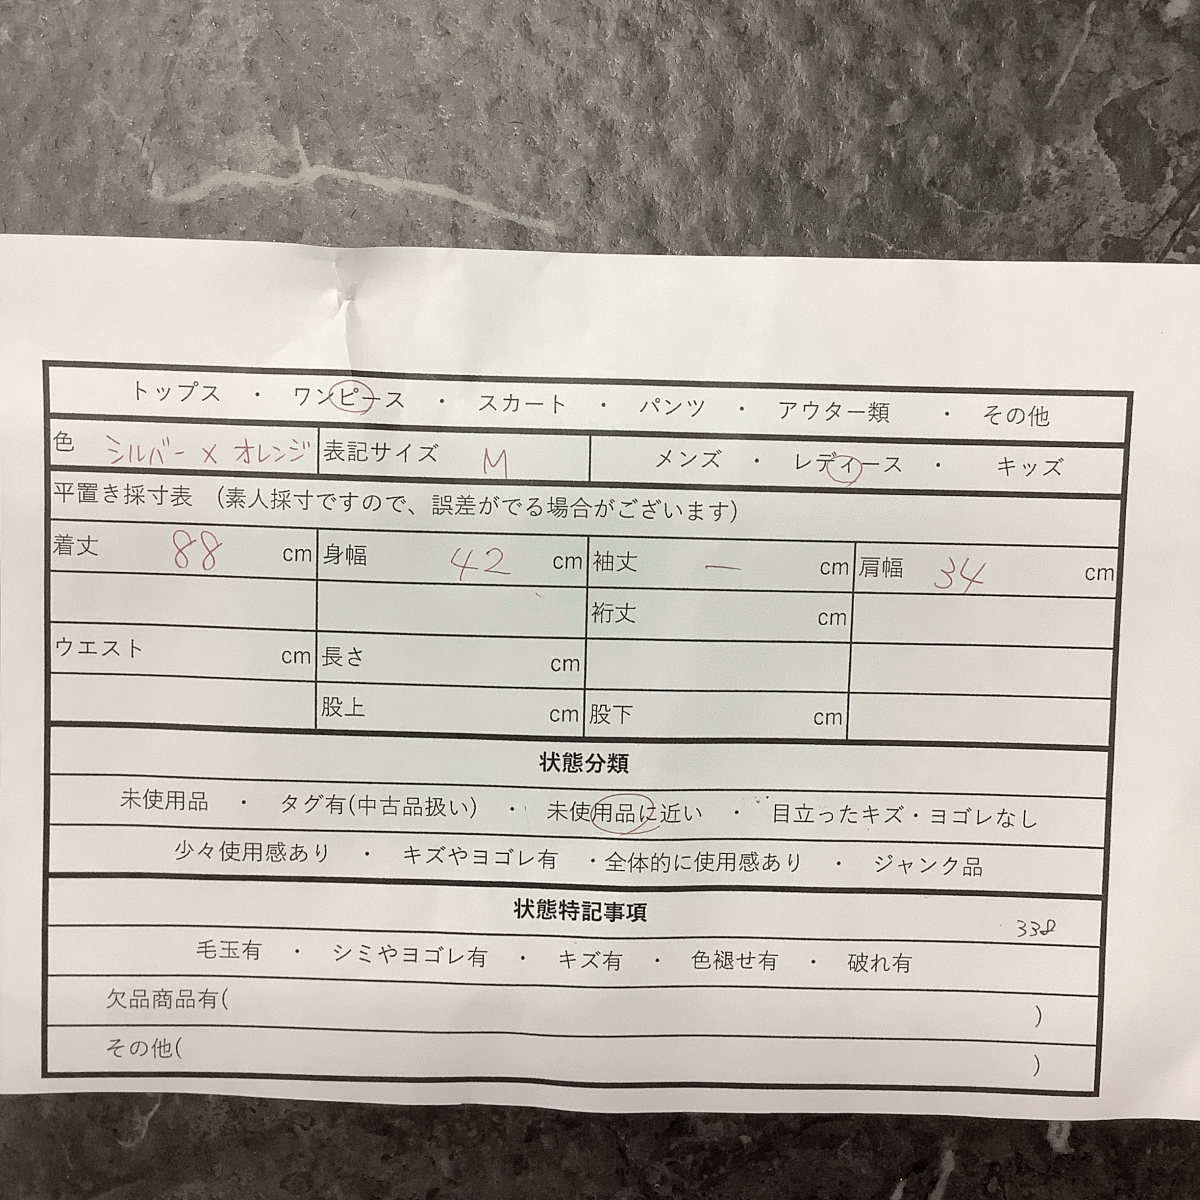 トップス ・ ワンピース ・ スカート ・ パンツ ・ アウター類 ・ その他
色 シルバー×オレンジ 表記サイズ M メンズ ・ レディース ・ キッズ
平置き採寸表 (素人採寸ですので、誤差がでる場合がございます)
着丈 88 cm 身幅 42 cm 袖丈 ー cm 肩幅 34 cm
裄丈 cm
ウエスト cm 長さ cm
股上 cm 股下 cm
状態分類
未使用品 ・ タグ有(中古品扱い) ・ 未使用品に近い ・ 目立ったキズ・ヨゴレなし
少々使用感あり ・ キズやヨゴレ有 ・全体的に使用感あり ・ ジャンク品
状態特記事項 338
毛玉有 ・ シミやヨゴレ有 ・ キズ有 ・ 色褪せ有 ・ 破れ有
欠品商品有( )
その他( )